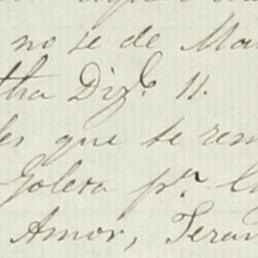 no se de Mar
tha Dize. 11.
les que se rem
Goleta pr. C
Amor, Teran